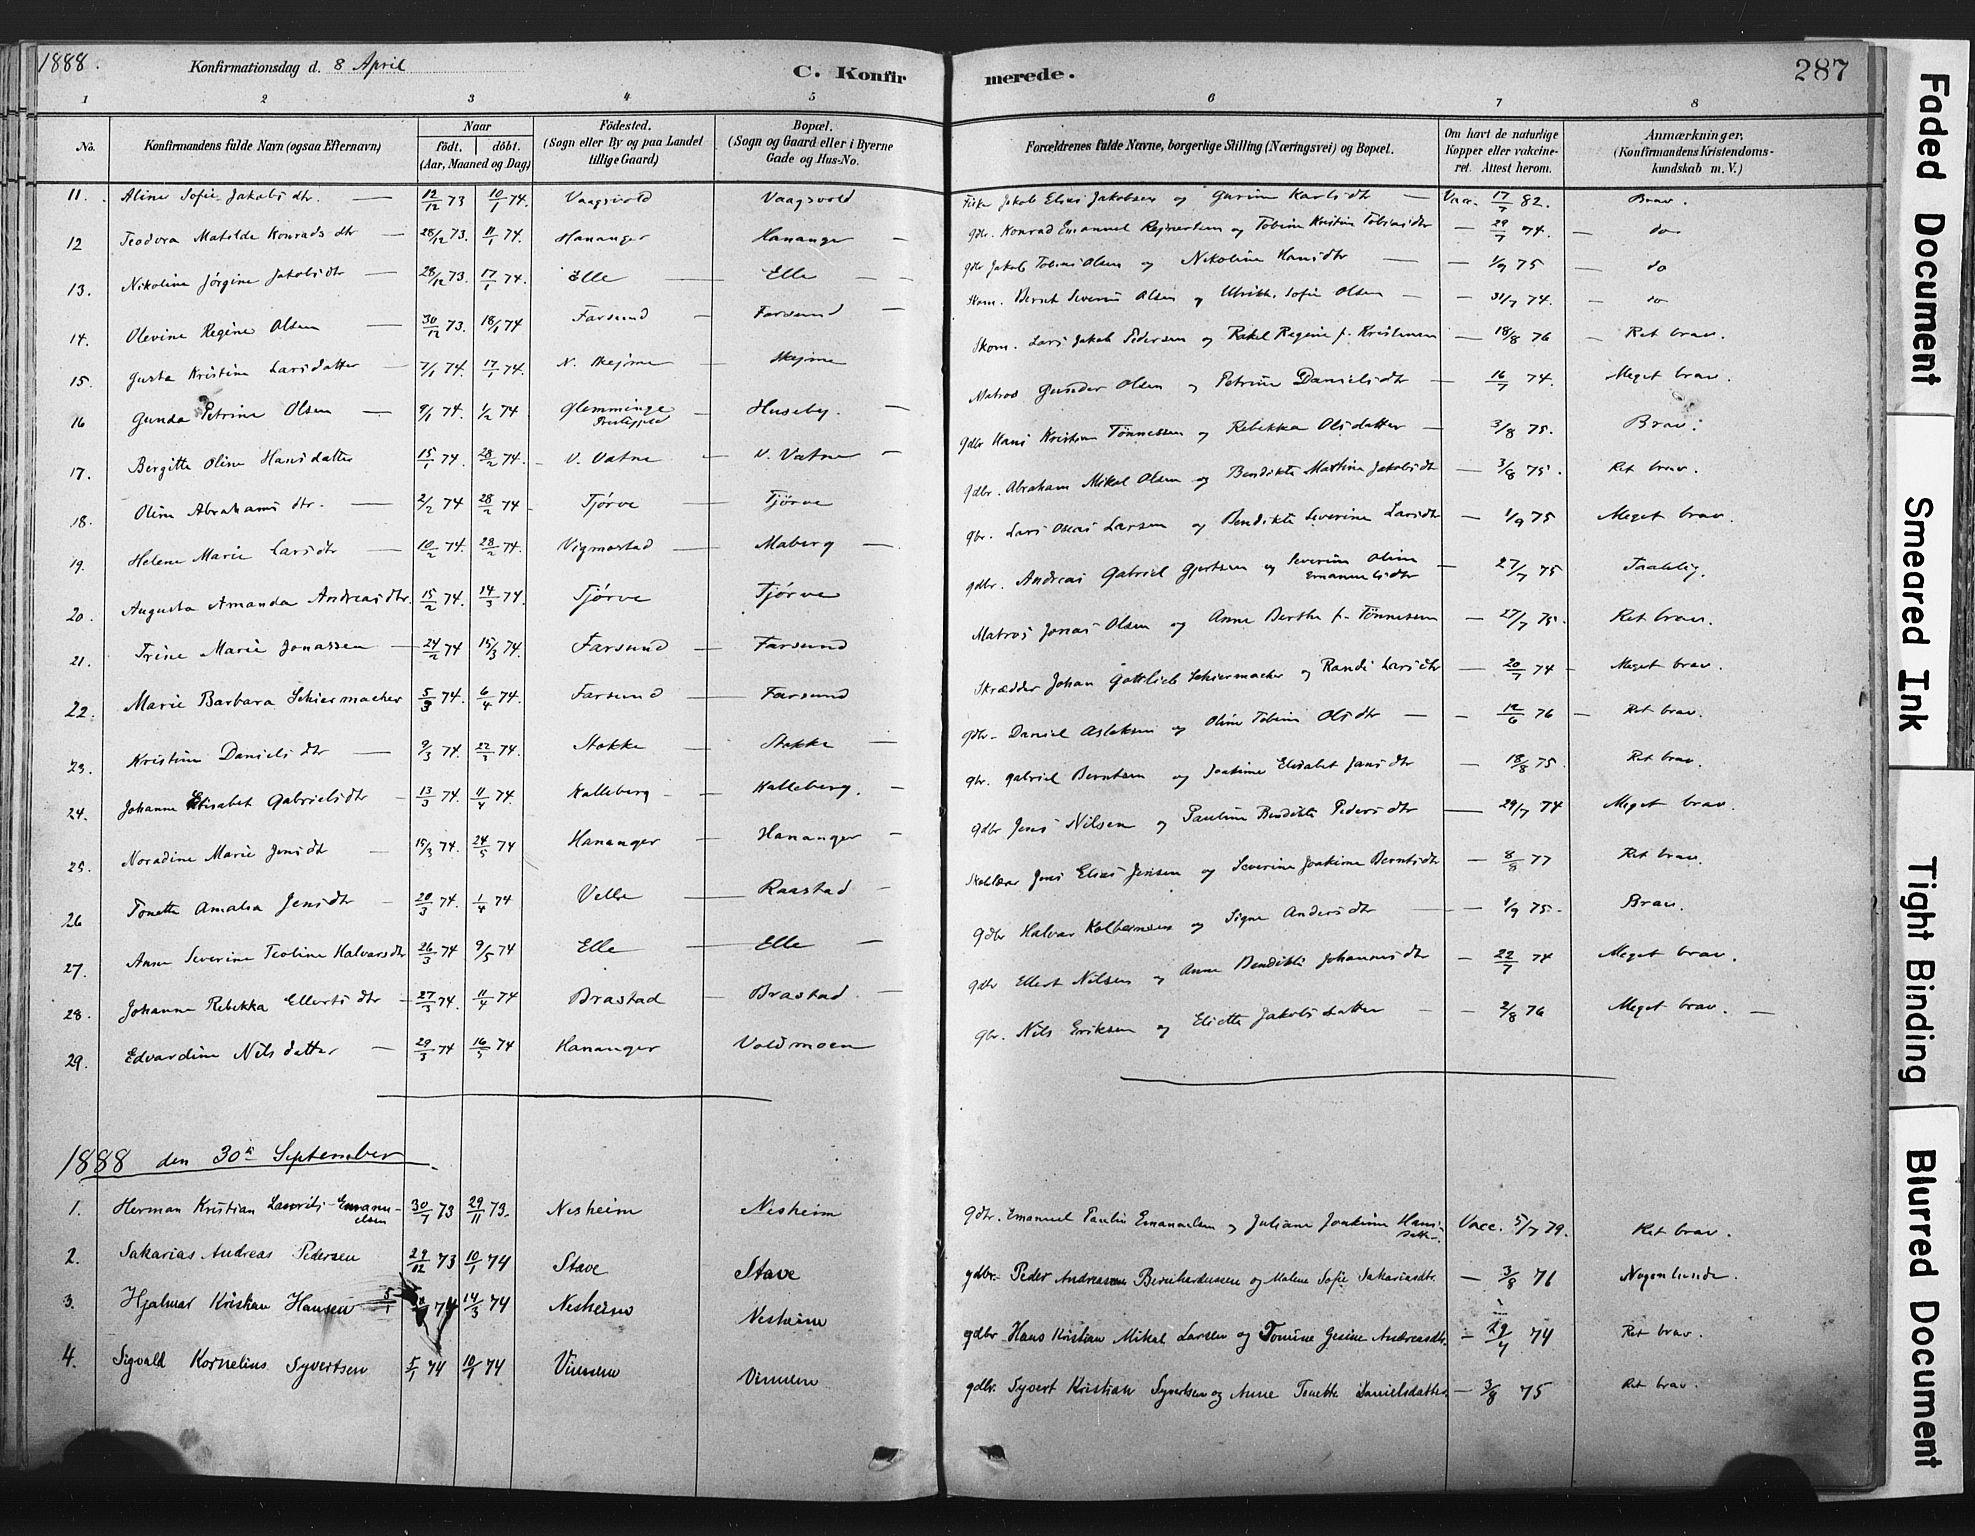 1888. Konfirmationsdag d. 8 April C. Konfirmerede. 287
1 2 3 4 5 6 7 8
No. Konfirmandens fulde Navn (ogsaa Efternavn) Naar født. døbt. (Aar, Maaned og Dag) Fødested. (Sogn eller By og paa Landet tillige Gaard) Bopæl. (Sogn og Gaard eller i Byerne Gade og Hus-No. Forældrenes fulde Navne, borgerlige Stilling (Næringsvei) og Bopæl. Om havt de naturlige Kopper eller vakcineret. Attest herom. Anmærkninger. (Konfirmandens Kristendomskundskab m. V.)
11. Aline Sofie Jakobsdtr. 12/12 73 10/1 74. Vaagsvold Vaagsvold Jakob Elias Jakobsen og Gurine Karlsdtr Vacc. 17/7 82. Brav.
12 Teodora Matilde Konradsdtr 28/12 73. 11/1 74. Hananger Hananger gdbr. Konrad Emanuel Reinertsen og Tobine Kristine Tobiasdtr 29/7 74. do
13. Nikoline Jørgine Jakobsdtr 28/12 73. 17/1 74. Elle Elle gdbr Jakob Tobias Olsen og Nikoline Hansdtr 1/9 75 do
14. Olevine Regine Olsen 30/12 73. 18/1 74 Farsund Farsund Skom. Bernt Severin Olsen og Ulrikke Sofie Olsen 31/7 74. do
15. Gusta Kristine Larsdatter 7/1 74. 17/1 74. N. Skejme Skejme Skom. Lars Jakob Pedersen og Rakel Regine f. Kristensen 18/8 76 Ret brav.
16 Gunda Petrine Olsen 9/1 74. 1/2 74 Glemminge Præstegjeld Huseby. Matros Gunder Olsen og Petrine Danielsdtr 16/7 74. Meget brav.
17. Bergitte Oline Hansdatter 15/1 74. 28/2 74. V. Vatne V. Vatne gdbr Hans Kristian Tønnessen og Rebekka Olsdatter 3/8 75. Brav.
18. Oline Abrahamsdtr. 2/2 74 28/2 74 Tjørve Tjørve gdbr. Abraham Mikal Olsen og Bendikte Martine Jakobsdtr 3/8 75. Ret brav.
19. Helene Marie Larsdtr 10/2 74. 28/2 74. Vigmostad Maberg gbr. Lars Oseas Larsen og Bendikte Severine Larsdtr 1/9 75 Meget brav.
20. Augusta Amanda Andreasdtr. 15/2 74. 14/3 74. Tjørve Tjørve gdbr. Andreas Gabriel Gjertsen og Severine Oline Emanuelsdtr 27/7 75 Taalelig.
21. Trine Marie Jonassen 24/2 74 15/3 74. Farsund Farsund Matros Jonas Olsen og Anne Berthe f. Tønnesen 27/7 75. Ret brav.
22. Marie Barbara Schiermacher 5/3 74. 6/4 74. Farsund Farsund Skrædder Johan Gottlieb Schiermacher og Randi Larsdtr 20/7 74 Meget brav.
23. Kristine Danielsdtr 9/3 74. 22/3 74. Stokke Stokke gdbr. Daniel Aslaksen og Oline Tobine Olsdtr 12/6 76 Ret brav.
24. Johanne Elisabet Gabrielsdtr 13/3 74. 11/4 74. Kalleberg Kalleberg. gbr. Gabriel Berntsen og Joakime Elisabet Jansdtr 18/8 75. Ret brav.
25. Noradine Marie Jensdtr 15/3 74. 24/5 74 Hananger Hananger gdbr Jens Nilsen og Pauline Bendikte Pedersdtr 29/7 74 Meget brav.
26 Tonette Amalia Jensdtr 20/3 74. 1/4 74 Raastad Jens Elias Jensen og Severine Joakime Berntsdtr 8/8 77 Ret brav.
27. Anne Severine Teoline Halvarsdtr 26/3 74 9/5 74 Elle Elle gdbr Halvar Kolbernsen og Signe Andersdtr 1/9 75. Brav.
28. Johanne Rebekka Ellertsdtr 27/3 74 11/4 74 Brastad Brastad gdbr Ellert Nilsen og Anne Bendikte Johannesdtr 22/7 74 Meget brav.
29. Edvardine Nilsdatter 29/3 74 16/5 74 Hananger Voldmoen gbr. Nils Eriksen og Eliette Jakobsdatter 2/8 76 Meget brav.
1888 den 30te September
1. Herman Kristian Lauritz Emanuelsen 30/7 73 29/11 73. Nesheim Nesheim gdbr. Emanuel Paulin Emanuelsen og Juliane Joakime Hansdatter Vacc. 5/7 79. Ret brav.
2. Sakarias Andreas Pedersen 29/12 73 10/1 74 Stave Stave gdbr. Peder Andreassen Bernhardussen og Malene Sofie Sakariasdtr. 3/8 76 Nogenlunde.
3. Hjalmar Kristian Hansen 5/1 74 14/3 74 Nesheim Nesheim gdbr Hans Kristian Mikal Larsen og Tomine Gesine Andreasdtr. 29/7 74 Ret brav.
4. Sigvald Kornelius Syvertsen 5/1 74 10/1 74 Vinnem Vinnem gdbr. Syvert Kristian Syvertsen og Anne Tonette Danielsdatter 3/8 75 Ret brav.
Faded Document
Smeared Ink
Tight Binding
Blurred Document